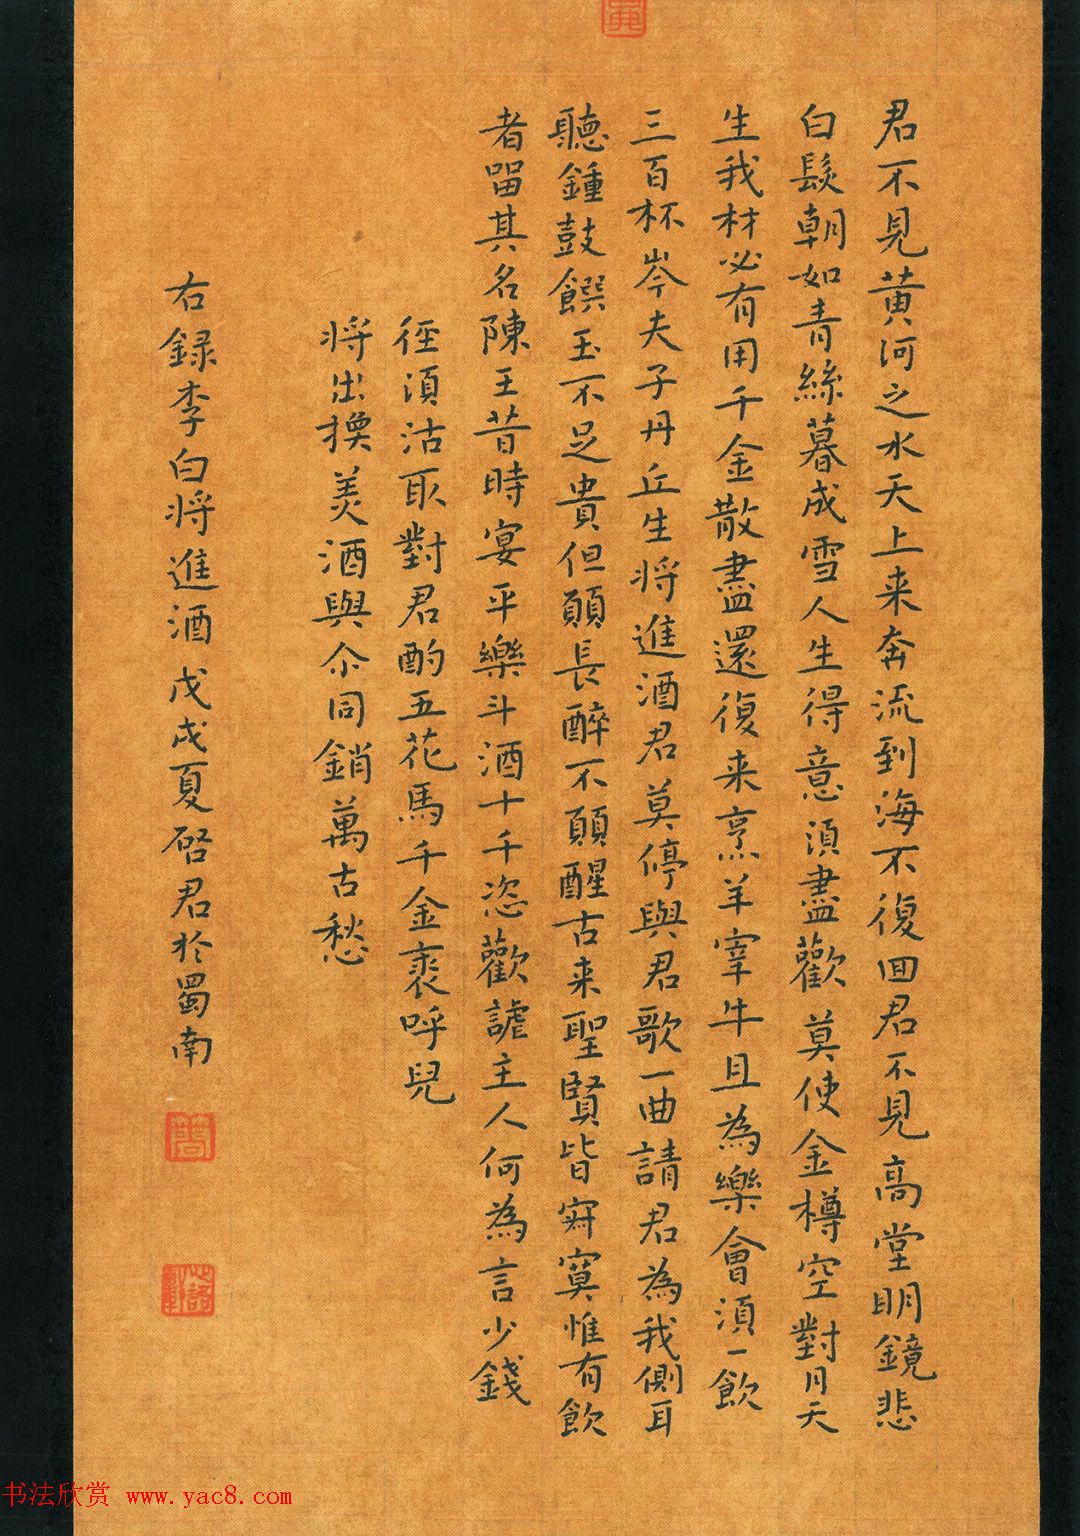 君不見黄河之水天上来奔流到海不復回君不見高堂明鏡悲
白髮朝如青絲暮成雪人生得意須盡歡莫使金樽空對月天
生我材必有用千金散盡還復来烹羊宰牛且為樂會須一飲
三百杯岑夫子丹丘生将進酒君莫停與君歌一曲請君為我側耳
聽鍾鼓饌玉不足貴但願長醉不願醒古来聖賢皆寂寞惟有飲
者留其名陳王昔時宴平樂斗酒十千恣歡謔主人何為言少錢
徑須沽取對君酌五花馬千金裘呼兒
将出換美酒與尔同銷萬古愁
右録李白将進酒戊戌夏啓君於蜀南
书法欣赏 www.yac8.com